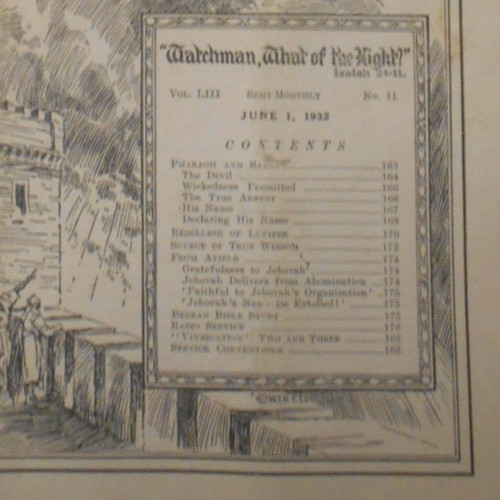 "Watchman, What of the Night?"
Isaiah 21-11.
VOL. LIII SEMI MONTHLY No. 11
JUNE 1, 1932
CONTENTS
PHARAOH AND 163
The Devil 164
Wickedness Permitted 166
The True Answer 166
His Name 167
Declaring His Name 168
REBELLION OF LUCIFER 170
SOURCE OF TRUE WISDOM 172
FROM AFIELD 174
Gratefulness to Jehovah 174
Jehovah Delivers from Abomination 174
'Faithful to Jehovah's Organization' 175
'Jehovah's Name be Extolled!' 175
BEREAN BIBLE STUDY 175
RADIO SERVICE 176
"VINDICATION" TWO AND THREE 162
SERVICE CONVENTIONS 162
©W.T.B.&T.S.